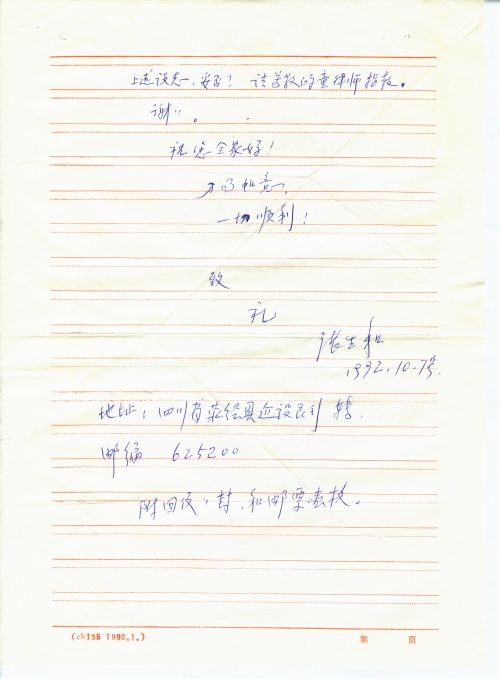 上述设想,妥否?请尊敬的童律师指教。
谢〃。
祝您全家好!
万了如意,
一切顺利!
致
礼
张生和
1992.10.7号.
地址:四川省荥经县 转.
邮编 625200
附回信 封,和邮票 枚。
(ch135 1992.1.) 第 页